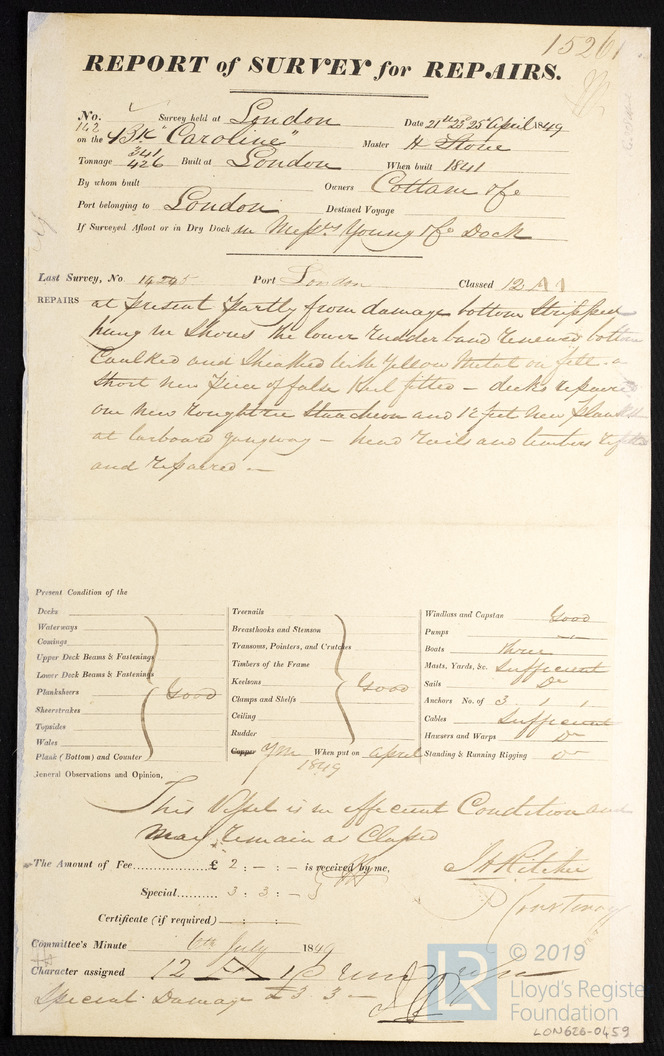 15261
REPORT of SURVEY for REPAIRS.
No. 142 Survey held at London Date 21st 23 25th April 1849
on the BK "Caroline" Master H Stone
Tonnage 341 426 Built at London When built 1841
By whom built Owners Cottam & Co
Port belonging to London Destined Voyage
If Surveyed Afloat or in Dry Dock in Messrs Young & Co Dock
Last Survey, No. 14245 Port London Classed 12 A1
REPAIRS at Present Partly from damage bottom Stripped
hung in Shores the lower rudder band renewed bottom
Caulked and Sheathed with Yellow Metal on felt - a
Short new Piece of false Keel fitted - decks repaired
one new roughtree Stancheon and 12 feet new Planksr
at larboard gangway - head rails and timbers refitted
and repaired -
Present Condition of the
Decks
Waterways
Comings
Upper Deck Beams & Fastenings
Lower Deck Beams & Fastenings
Planksheers Good
Sheerstrakes
Topsides
Wales
Plank (Bottom) and Counter
Treenails
Breasthooks and Stemson
Transoms, Pointers, and Crutches
Timbers of the Frame
Keelsons Good
Clamps and Shelfs
Ceiling
Rudder
Copper YM When put on April 1849
Windlass and Capstan Good
Pumps
Boats three
Masts, Yards, &c. Sufficient
Sails Do
Anchors No. of 3 , 1 , 1
Cables Sufficient
Hawsers and Warps Do
Standing & Running Rigging Do
General Observations and Opinion,
This Vessel is in efficient Condition and
may remain as Classed
The Amount of Fee £ 2 : - : - is received by me,
Special 3 : 3 : -
J H Ritchie
P Courtenay
Certificate (if required) - : - : -
Committee's Minute 6th July 1849
Character assigned 12 A1
Special Damage £3 3 -
© 2019
Lloyd's Register
Foundation
LON626-0459